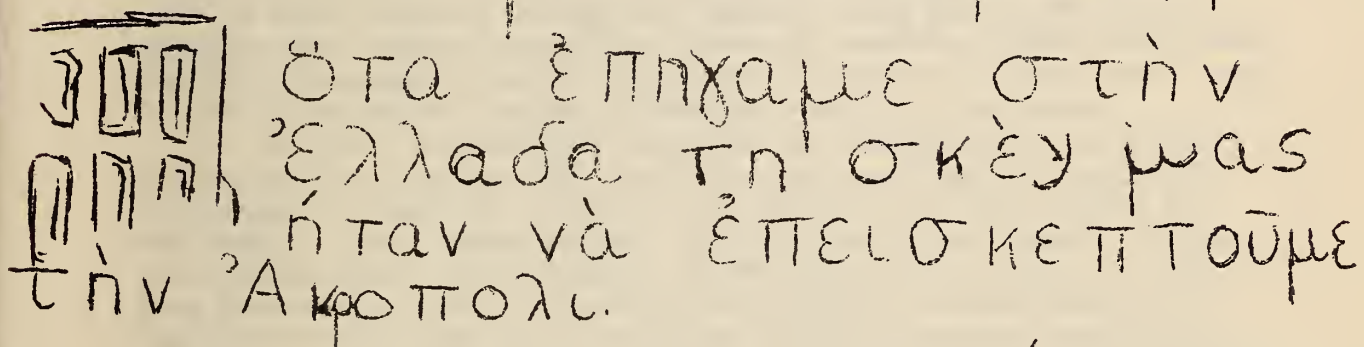 ὅτα ἐπηγαμε στὴν
Ἐλλαδα τη σκὲψ μας
ἠταν νὰ ἐπεισκεπτοῦμε
τὴν Ἀκροπολι.